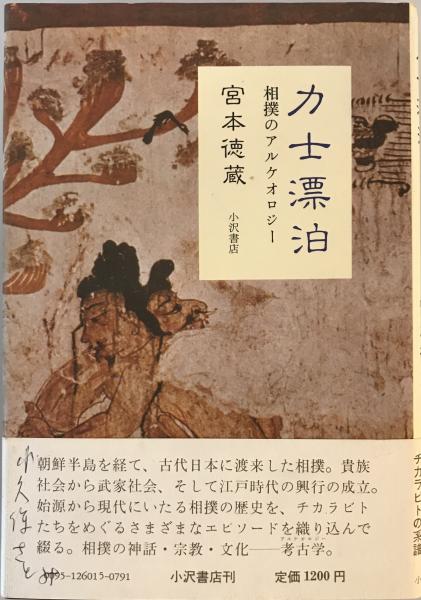 力士漂泊
相撲のアルケオロジー
宮本徳蔵
小沢書店
朝鮮半島を経て、古代日本に渡来した相撲。貴族
社会から武家社会、そして江戸時代の興行の成立。
始源から現代にいたる相撲の歴史を、チカラビト
たちをめぐるさまざまなエピソードを織り込んで
綴る。相撲の神話・宗教・文化——考古学。
アルケオロジー
95-126015-0791
小沢書店刊
定価 1200円
チカラビトの系譜
小